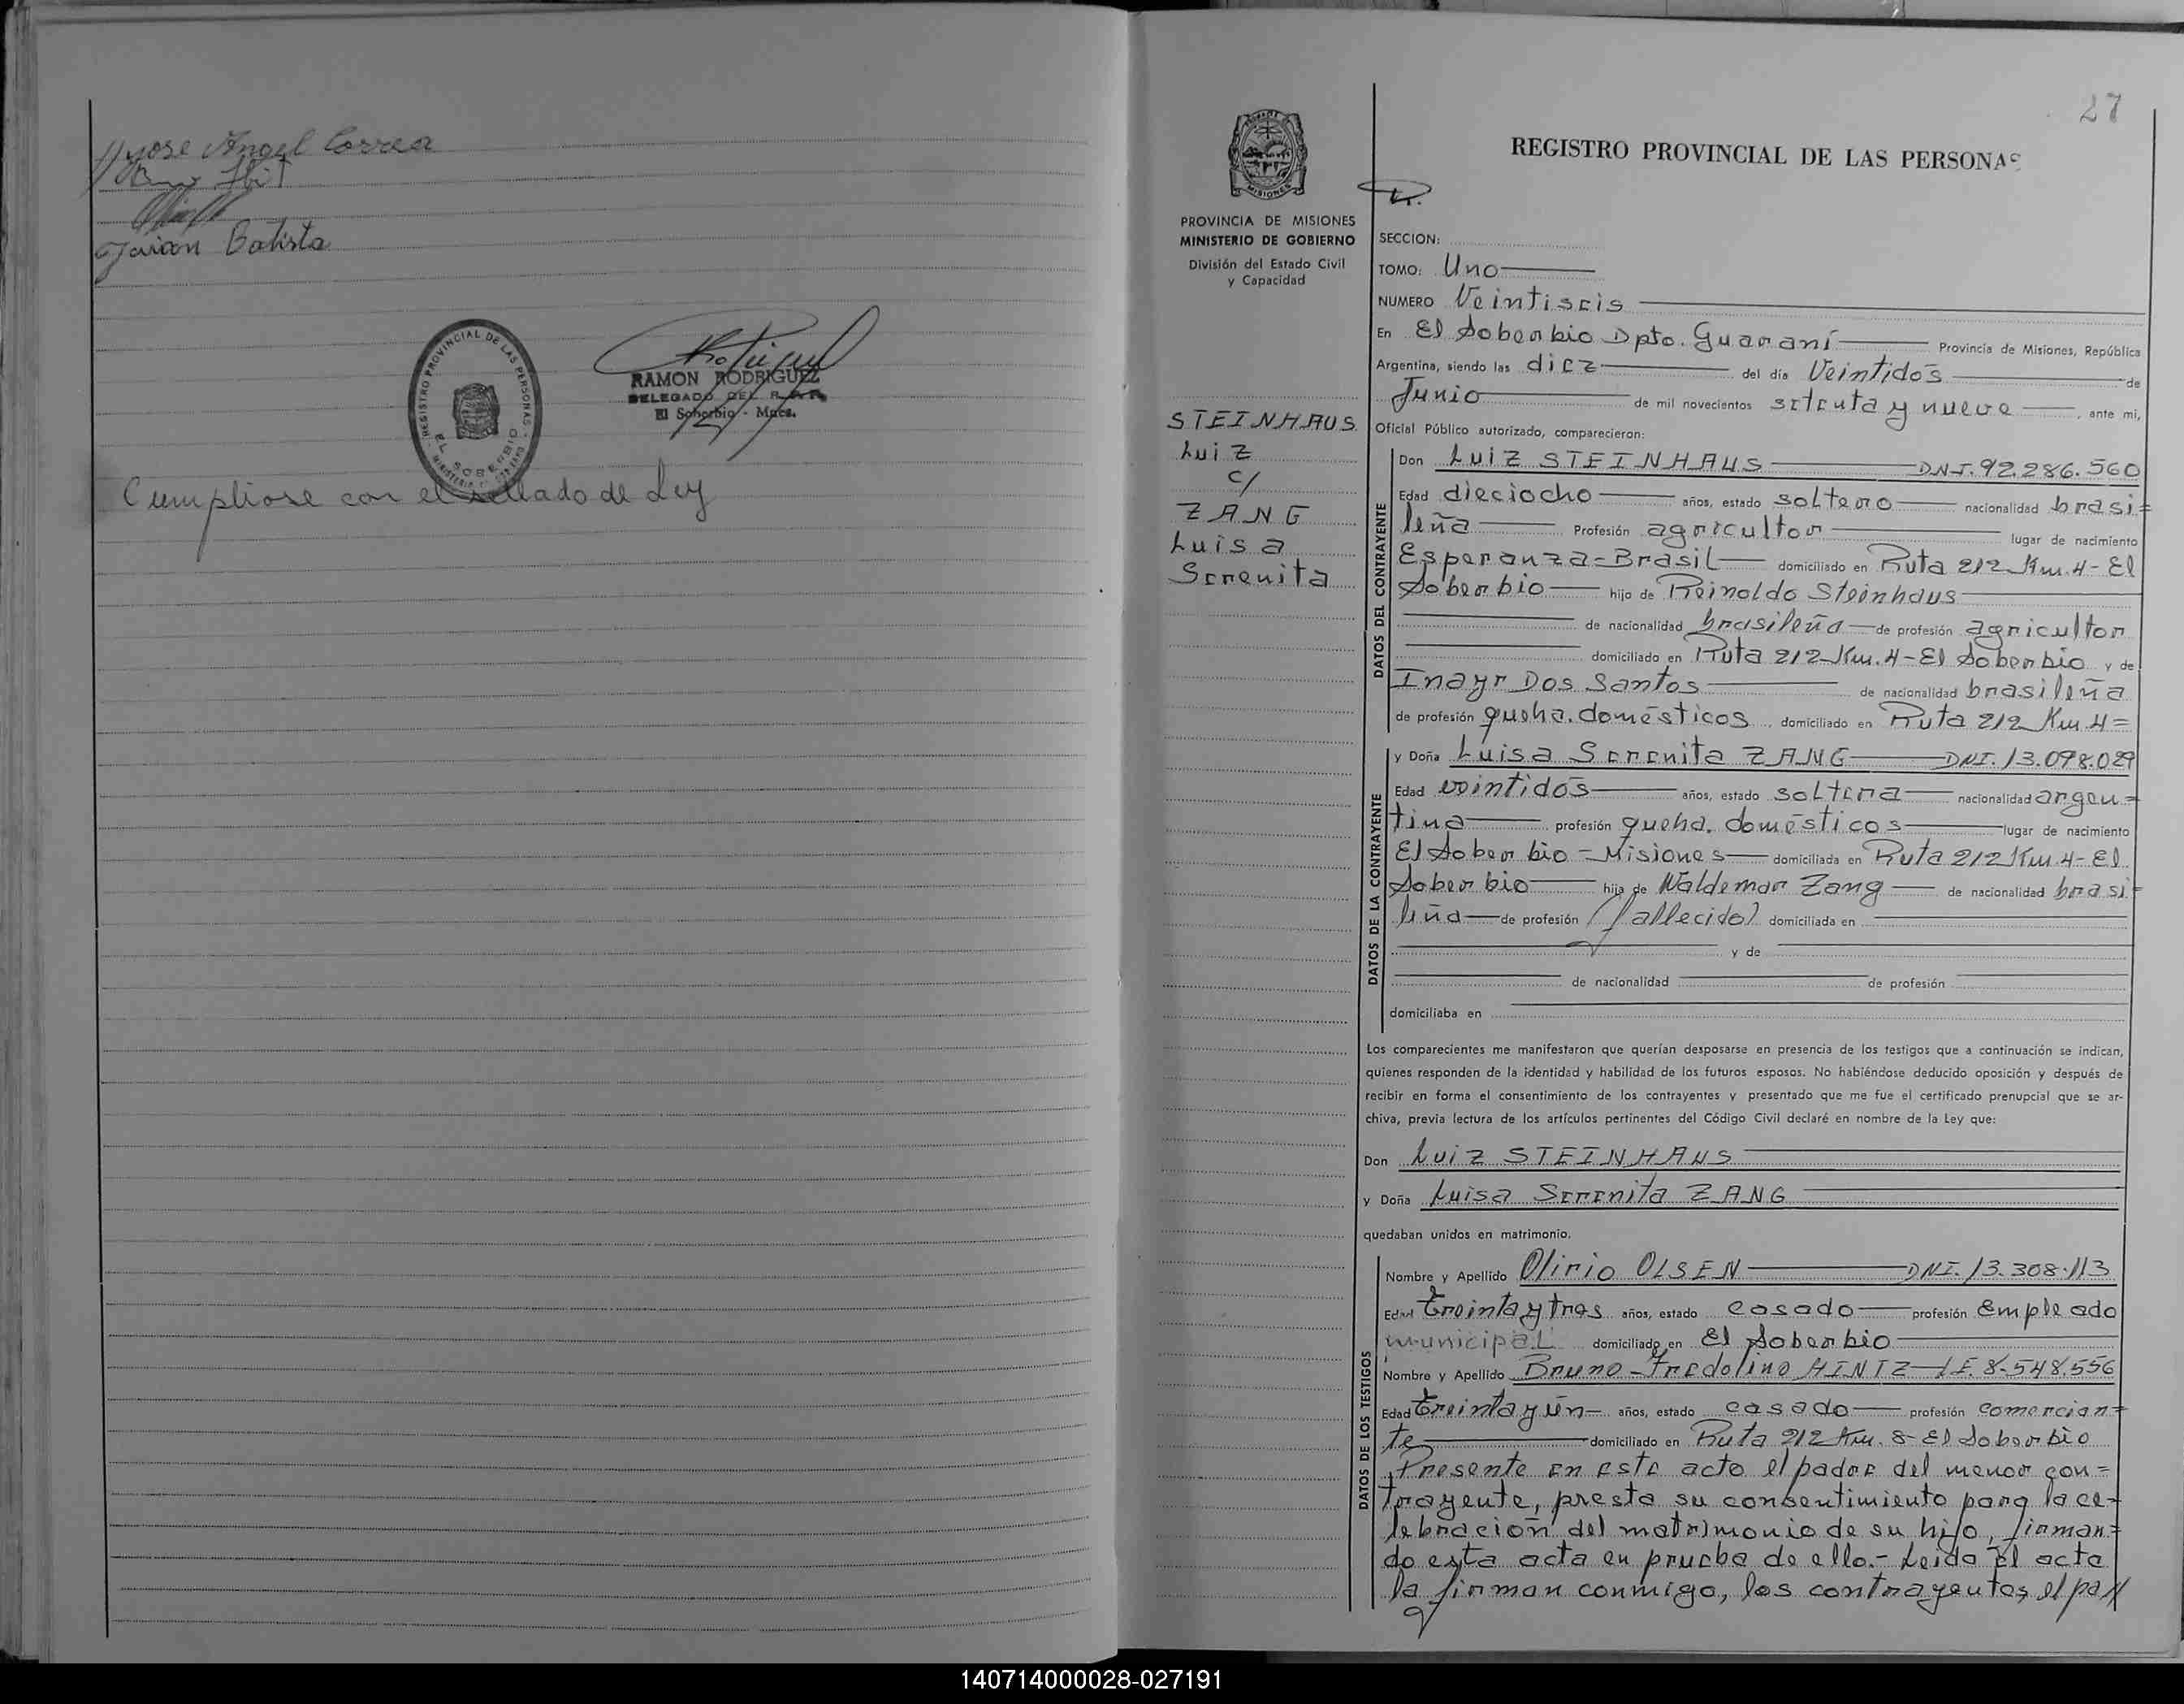 José Angel Correa
Jaian Batista
REGISTRO PROVINCIAL DE LAS PERSONAS
EL SOBERBIO
RAMON RODRIGUEZ
DELEGADO DEL R.P.P.
El Soberbio - Mnes.
Cumpliose con el sellado de Ley
27
REGISTRO PROVINCIAL DE LAS PERSONAS
MISIONES
PROVINCIA DE MISIONES
MINISTERIO DE GOBIERNO
División del Estado Civil
y Capacidad
STEINHAUS
Luiz
c/
ZANG
Luisa
Serenita
SECCION:
TOMO: Uno
NUMERO Veintiseis
En El Soberbio Dpto. Guaraní Provincia de Misiones, República
Argentina, siendo las diez del día Veintidós de
Junio de mil novecientos setenta y nueve, ante mi,
Oficial Público autorizado, comparecieron:
DATOS DEL CONTRAYENTE
Don Luiz STEINHAUS DNI. 92.286.560
Edad dieciocho años, estado soltero nacionalidad brasi=
leña Profesión agricultor lugar de nacimiento
Esperanza=Brasil domiciliado en Ruta 212 Km. 4 - El
Soberbio hijo de Reinoldo Steinhaus
de nacionalidad brasileña de profesión agricultor
domiciliado en Ruta 212 Km. 4 - El Soberbio y de
Inayr Dos Santos de nacionalidad brasileña
de profesión queha. domésticos domiciliado en Ruta 212 Km. 4=
DATOS DE LA CONTRAYENTE
y Doña Luisa Serenita ZANG DNI. 13.098.029
Edad veintidós años, estado soltera nacionalidad argen=
tina profesión queha. domésticos lugar de nacimiento
El Soberbio - Misiones domiciliada en Ruta 212 Km. 4 - El
Soberbio hija de Waldemar Zang de nacionalidad brasi=
leña de profesión (fallecido) domiciliada en
y de
de nacionalidad de profesión
domiciliaba en
Los comparecientes me manifestaron que querían desposarse en presencia de los testigos que a continuación se indican,
quienes responden de la identidad y habilidad de los futuros esposos. No habiéndose deducido oposición y después de
recibir en forma el consentimiento de los contrayentes y presentado que me fue el certificado prenupcial que se ar-
chiva, previa lectura de los artículos pertinentes del Código Civil declaré en nombre de la Ley que:
Don Luiz STEINHAUS
y Doña Luisa Serenita ZANG
quedaban unidos en matrimonio.
DATOS DE LOS TESTIGOS
Nombre y Apellido Olirio OLSEN DNI. 13.308.113
Edad treinta y tres años, estado casado profesión empleado
municipal domiciliado en El Soberbio
Nombre y Apellido Bruno Fredolino HINTZ LE. 8.548.556
Edad treinta y un años, estado casado profesión comercian=
te domiciliado en Ruta 212 Km. 8 - El Soberbio
Presente en este acto el padre del menor con=
trayente, presta su consentimiento para la ce=
lebración del matrimonio de su hijo, firman=
do esta acta en prueba de ello.- Leída el acta
la firman conmigo, los contrayentes, el pa//
140714000028-027191